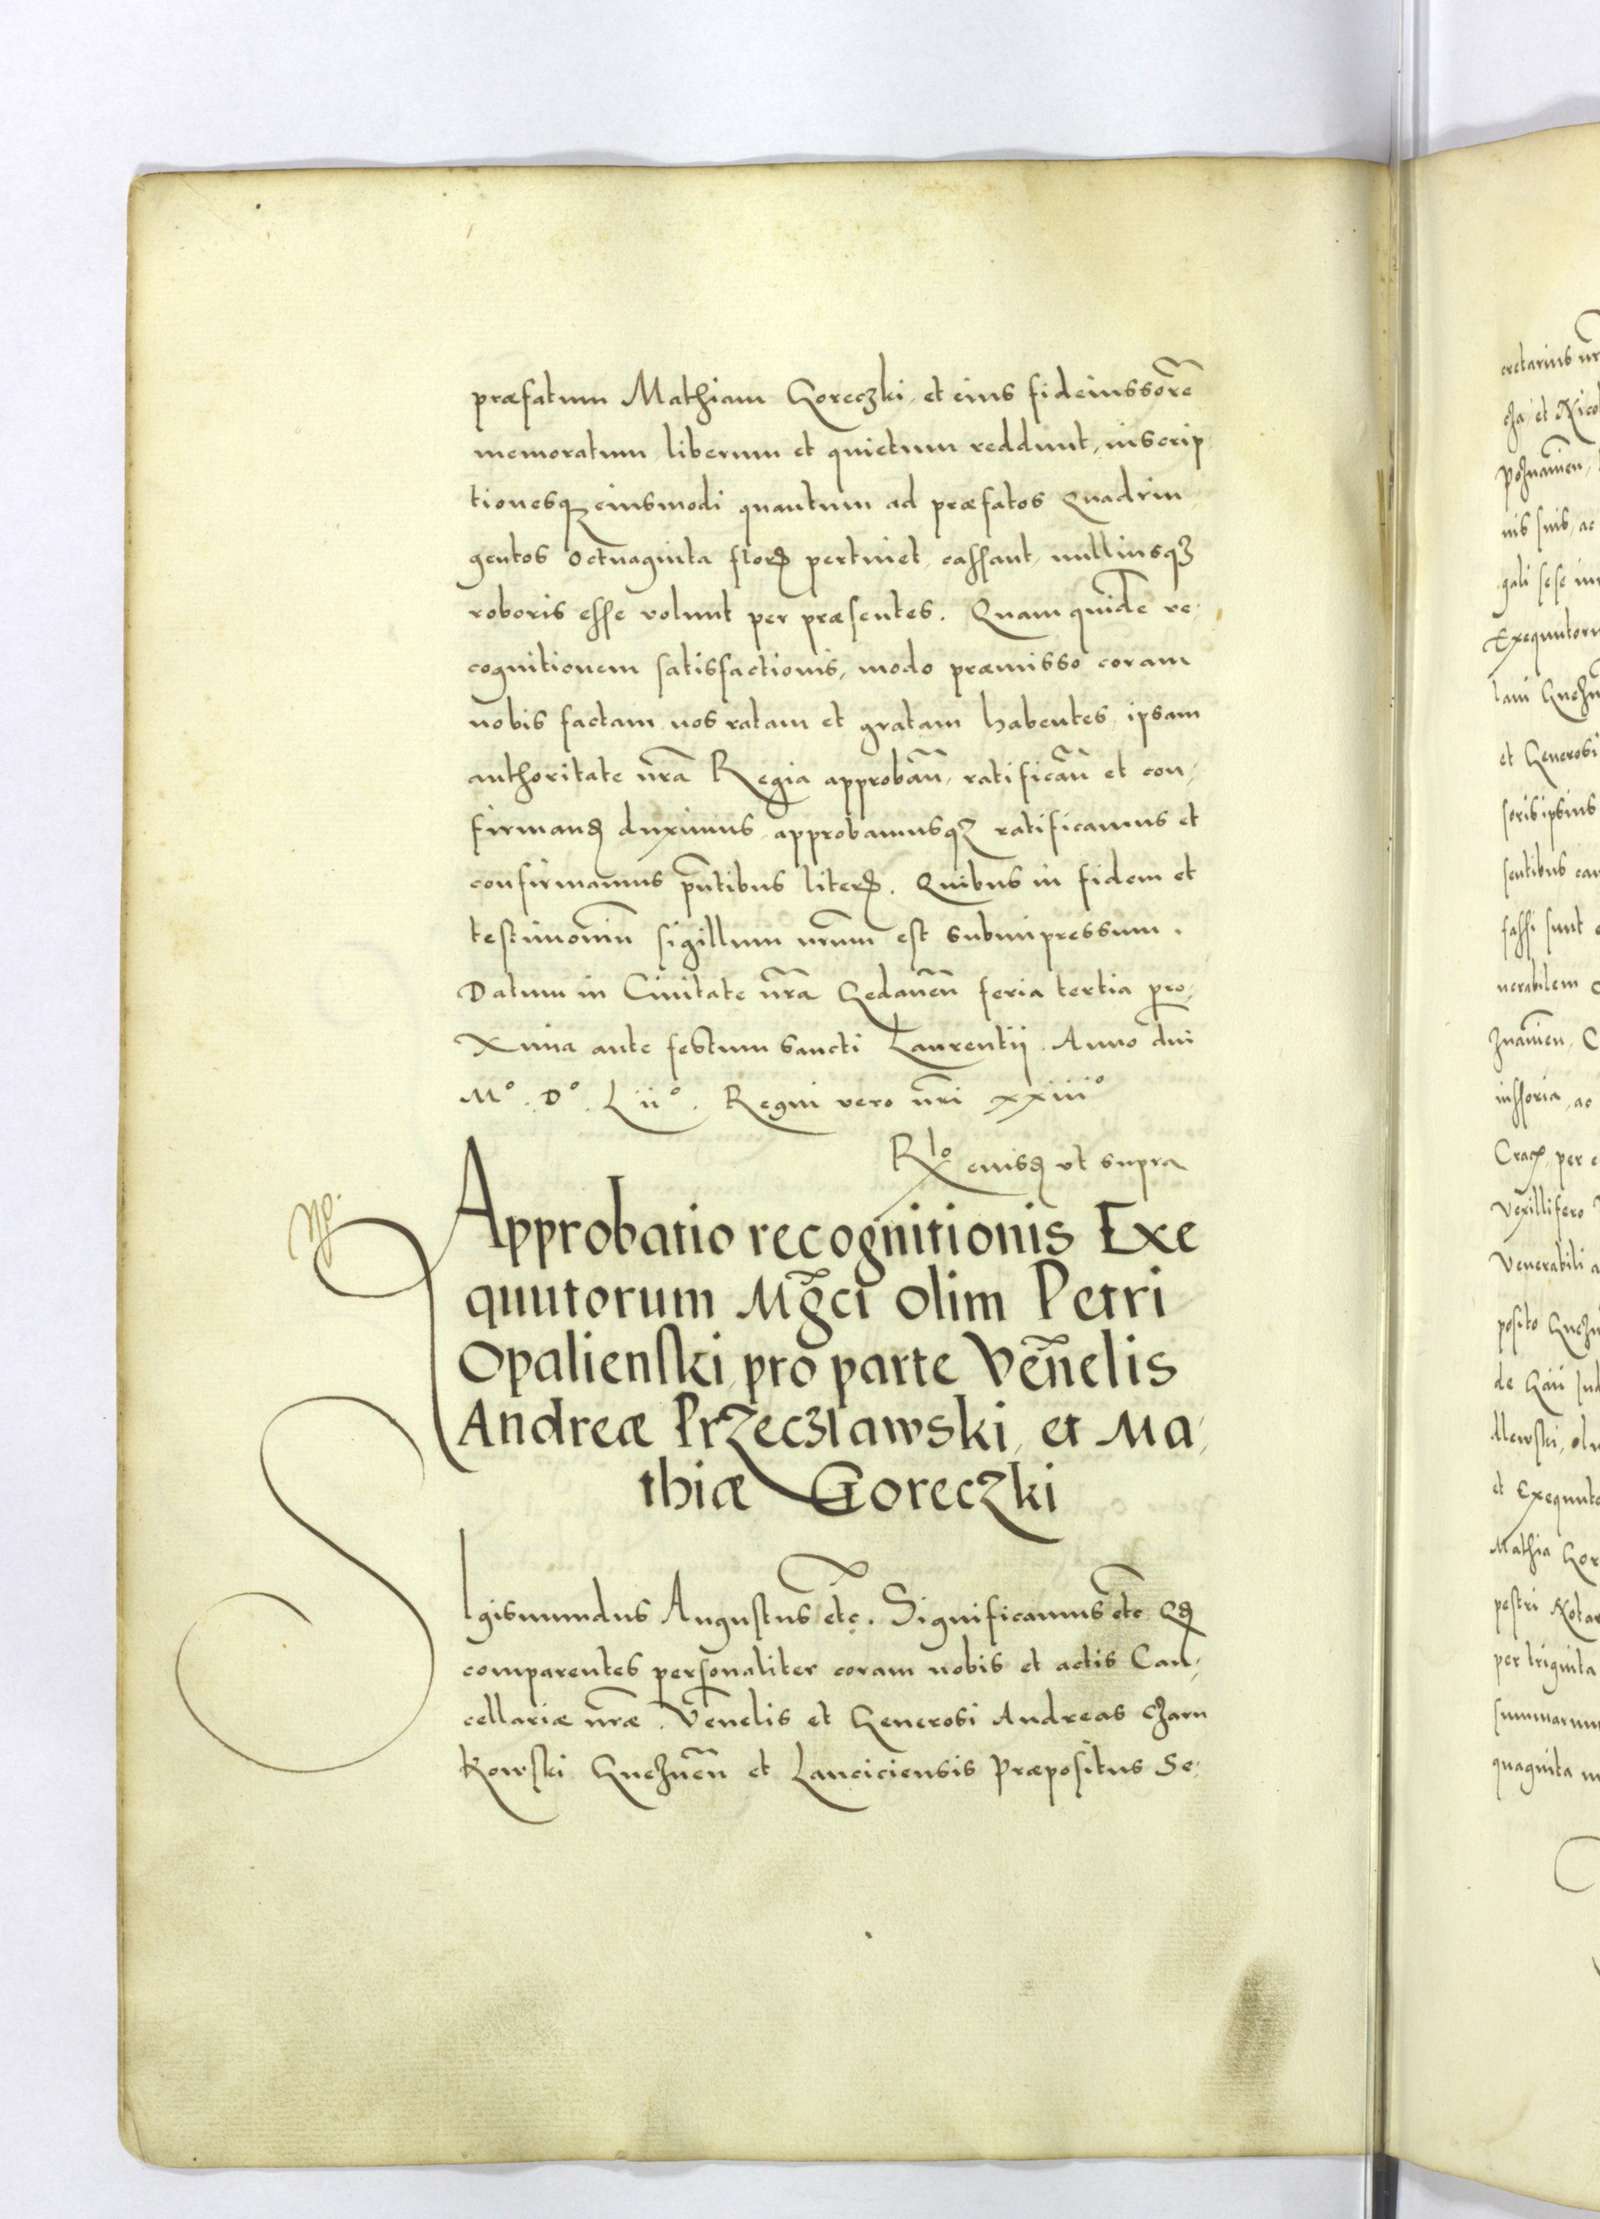 præfatum Mathiam Goreczki, et eius fideiussorē
memoratum liberum et quietum reddunt, inscrip
tionesqȝ eiusmodi quantum ad præfatos Quadrin
gentos octuaginta florꝭ pertinet, cassant, nulliusqȝ
roboris esse volunt per præsentes. Quam quidē re,
cognitionem satisfactionis, modo præmisso coram
nobis factam nos ratam et gratam habentes, ipsam
authoritate nrā Regia approbañ, ratificañ et con,
firmanꝭ duximus, approbamusqȝ ratificamus et
confirmamus pn̄tibus literꝭ. Quibus in fidem et
testimoniū sigillum nrūm est subimpressum.
Datum in Civitate nrā Gedaneñ feria tertia pro,
xima ante festum sancti Laurentii. Anno dni
Mº. Dº. Liiº. Regni vero nrī xxiiiº
Rlo eiusꝭ ut supra
Approbatio recognitionis Exe
quutorum Mgc̄i olim Petri
Opalienski, pro parte Venēlis
Andreæ Przeczlawski, et Ma,
thiæ Goreczki
Sigismundus Augustus etc. Significamus etc Qꝭ
comparentes personaliter coram nobis et actis Can,
cellariæ nræ. Venēlis et Generosi Andreas Czarn
kowski Gnezneñ et Lanciciensis Præpositus Se,
cretarius
cza, et Nico
Poznanień,
nis suis, ac
gali sese
Exequutoru
lani Gnezn
et Generosi
soris ipsius
sentibus
fassi sunt
nerabilem
znanień, C
iussoria, ac
Cracꝭ, per
Vexillifero
Venerabili a
posito Gnezn
de Gaii Jud
et Exequuto
Mathia Gor
pestri Notar
per triginta
summarum
quaginta